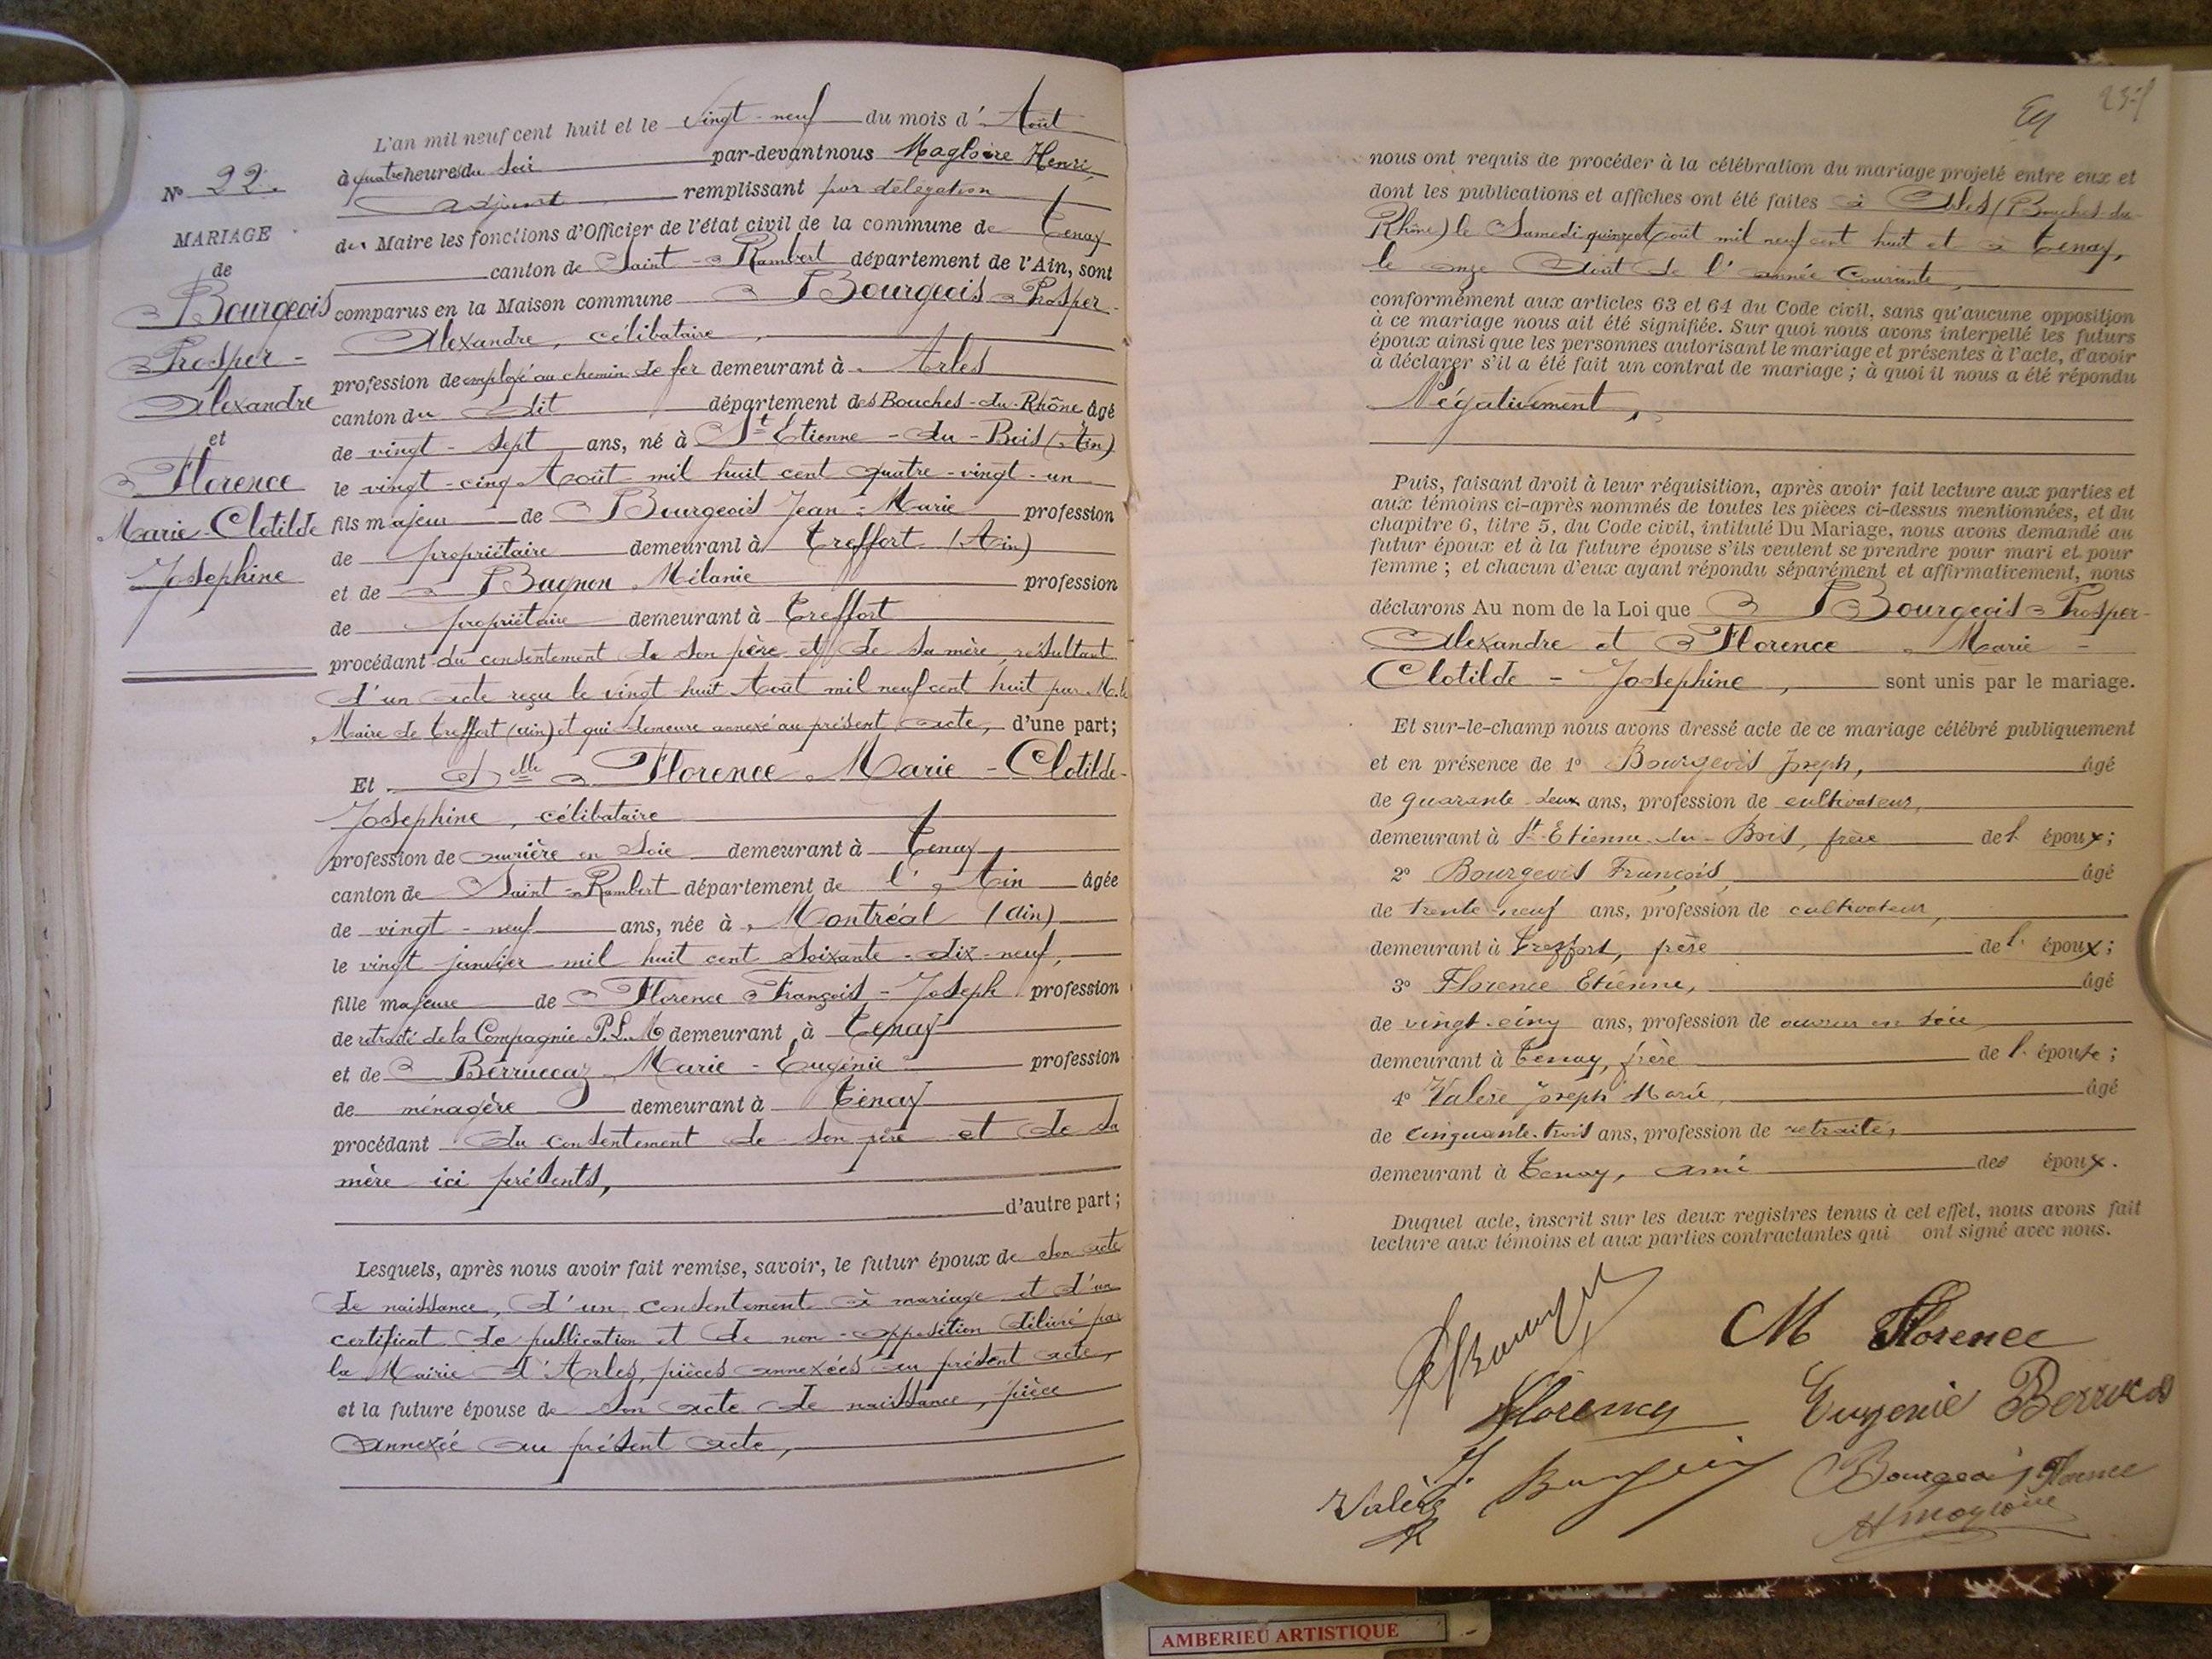 L'an mil neuf cent huit et le vingt-neuf du mois d'Août
à quatre heures du soir par-devant nous Magloire Henri,
adjoint remplissant par délégation
du Maire les fonctions d'Officier de l'état civil de la commune de Tenay
canton de Saint-Rambert département de l'Ain, sont
comparus en la Maison commune Bourgeois Prosper-
Alexandre, célibataire,
profession de employé au chemin de fer demeurant à Arles
canton du dit département des Bouches-du-Rhône âgé
de vingt-sept ans, né à St Etienne-du-Bois (Ain)
le vingt-cinq Août mil huit cent quatre-vingt-un
fils majeur de Bourgeois Jean-Marie profession
de propriétaire demeurant à Treffort (Ain)
et de Bagnon Mélanie profession
de propriétaire demeurant à Treffort
procédant du consentement de son père et de sa mère, résultant
d'un acte reçu le vingt-huit Août mil neuf cent huit par M. le
Maire de Treffort (ain) et qui demeure annexé au présent acte, d'une part;
Et Delle Florence Marie-Clotilde-
Josephine, célibataire
profession de ouvrière en soie demeurant à Tenay
canton de Saint-Rambert département de l'Ain âgée
de vingt-neuf ans, née à Montréal (Ain)
le vingt janvier mil huit cent soixante-dix-neuf,
fille majeure de Florence François-Joseph profession
de retraité de la Compagnie P.L.M demeurant à Tenay
et de Berruccaz Marie-Eugénie profession
de ménagère demeurant à Tenay
procédant du consentement de son père et de sa
mère ici présents,
d'autre part;
Lesquels, après nous avoir fait remise, savoir, le futur époux de son acte
de naissance, d'un consentement à mariage et d'un
certificat de publication et de non-opposition délivré par
la Mairie d'Arles, pièces annexées au présent acte,
et la future épouse de son acte de naissance, pièce
annexée au présent acte,
N° 22.
MARIAGE
de
Bourgeois
Prosper-
Alexandre
et
Florence
Marie-Clotilde
Josephine
nous ont requis de procéder à la célébration du mariage projeté entre eux et
dont les publications et affiches ont été faites à Arles (Bouches-du-
Rhône) le Samedi quinze Août mil neuf cent huit et à Tenay,
le onze Août de l'année Courante,
conformément aux articles 63 et 64 du Code civil, sans qu'aucune opposition
à ce mariage nous ait été signifiée. Sur quoi nous avons interpellé les futurs
époux ainsi que les personnes autorisant le mariage et présentes à l'acte, d'avoir
à déclarer s'il a été fait un contrat de mariage; à quoi il nous a été répondu
Négativement,
Puis, faisant droit à leur réquisition, après avoir fait lecture aux parties et
aux témoins ci-après nommés de toutes les pièces ci-dessus mentionnées, et du
chapitre 6, titre 5, du Code civil, intitulé Du Mariage, nous avons demandé au
futur époux et à la future épouse s'ils veulent se prendre pour mari et pour
femme; et chacun d'eux ayant répondu séparément et affirmativement, nous
déclarons Au nom de la Loi que Bourgeois Prosper-
Alexandre et Florence Marie-
Clotilde-Josephine, sont unis par le mariage.
Et sur-le-champ nous avons dressé acte de ce mariage célébré publiquement
et en présence de 1° Bourgeois Joseph, âgé
de quarante-deux ans, profession de cultivateur,
demeurant à St-Etienne-du-Bois, frère de l'époux;
2° Bourgeois François, âgé
de trente-neuf ans, profession de cultivateur,
demeurant à Treffort, frère de l'époux;
3° Florence Etienne, âgé
de vingt-cinq ans, profession de ouvrier en soie
demeurant à Tenay, frère de l'épouse;
4° Valère Joseph Marie, âgé
de cinquante-trois ans, profession de retraité,
demeurant à Tenay, ami des époux.
Duquel acte, inscrit sur les deux registres tenus à cet effet, nous avons fait
lecture aux témoins et aux parties contractantes qui ont signé avec nous.
M Florence
Florence Eugenie Berruca
Valère J. Bourgeois Bourgeois Florence
H Magloire
AMBERIEU ARTISTIQUE